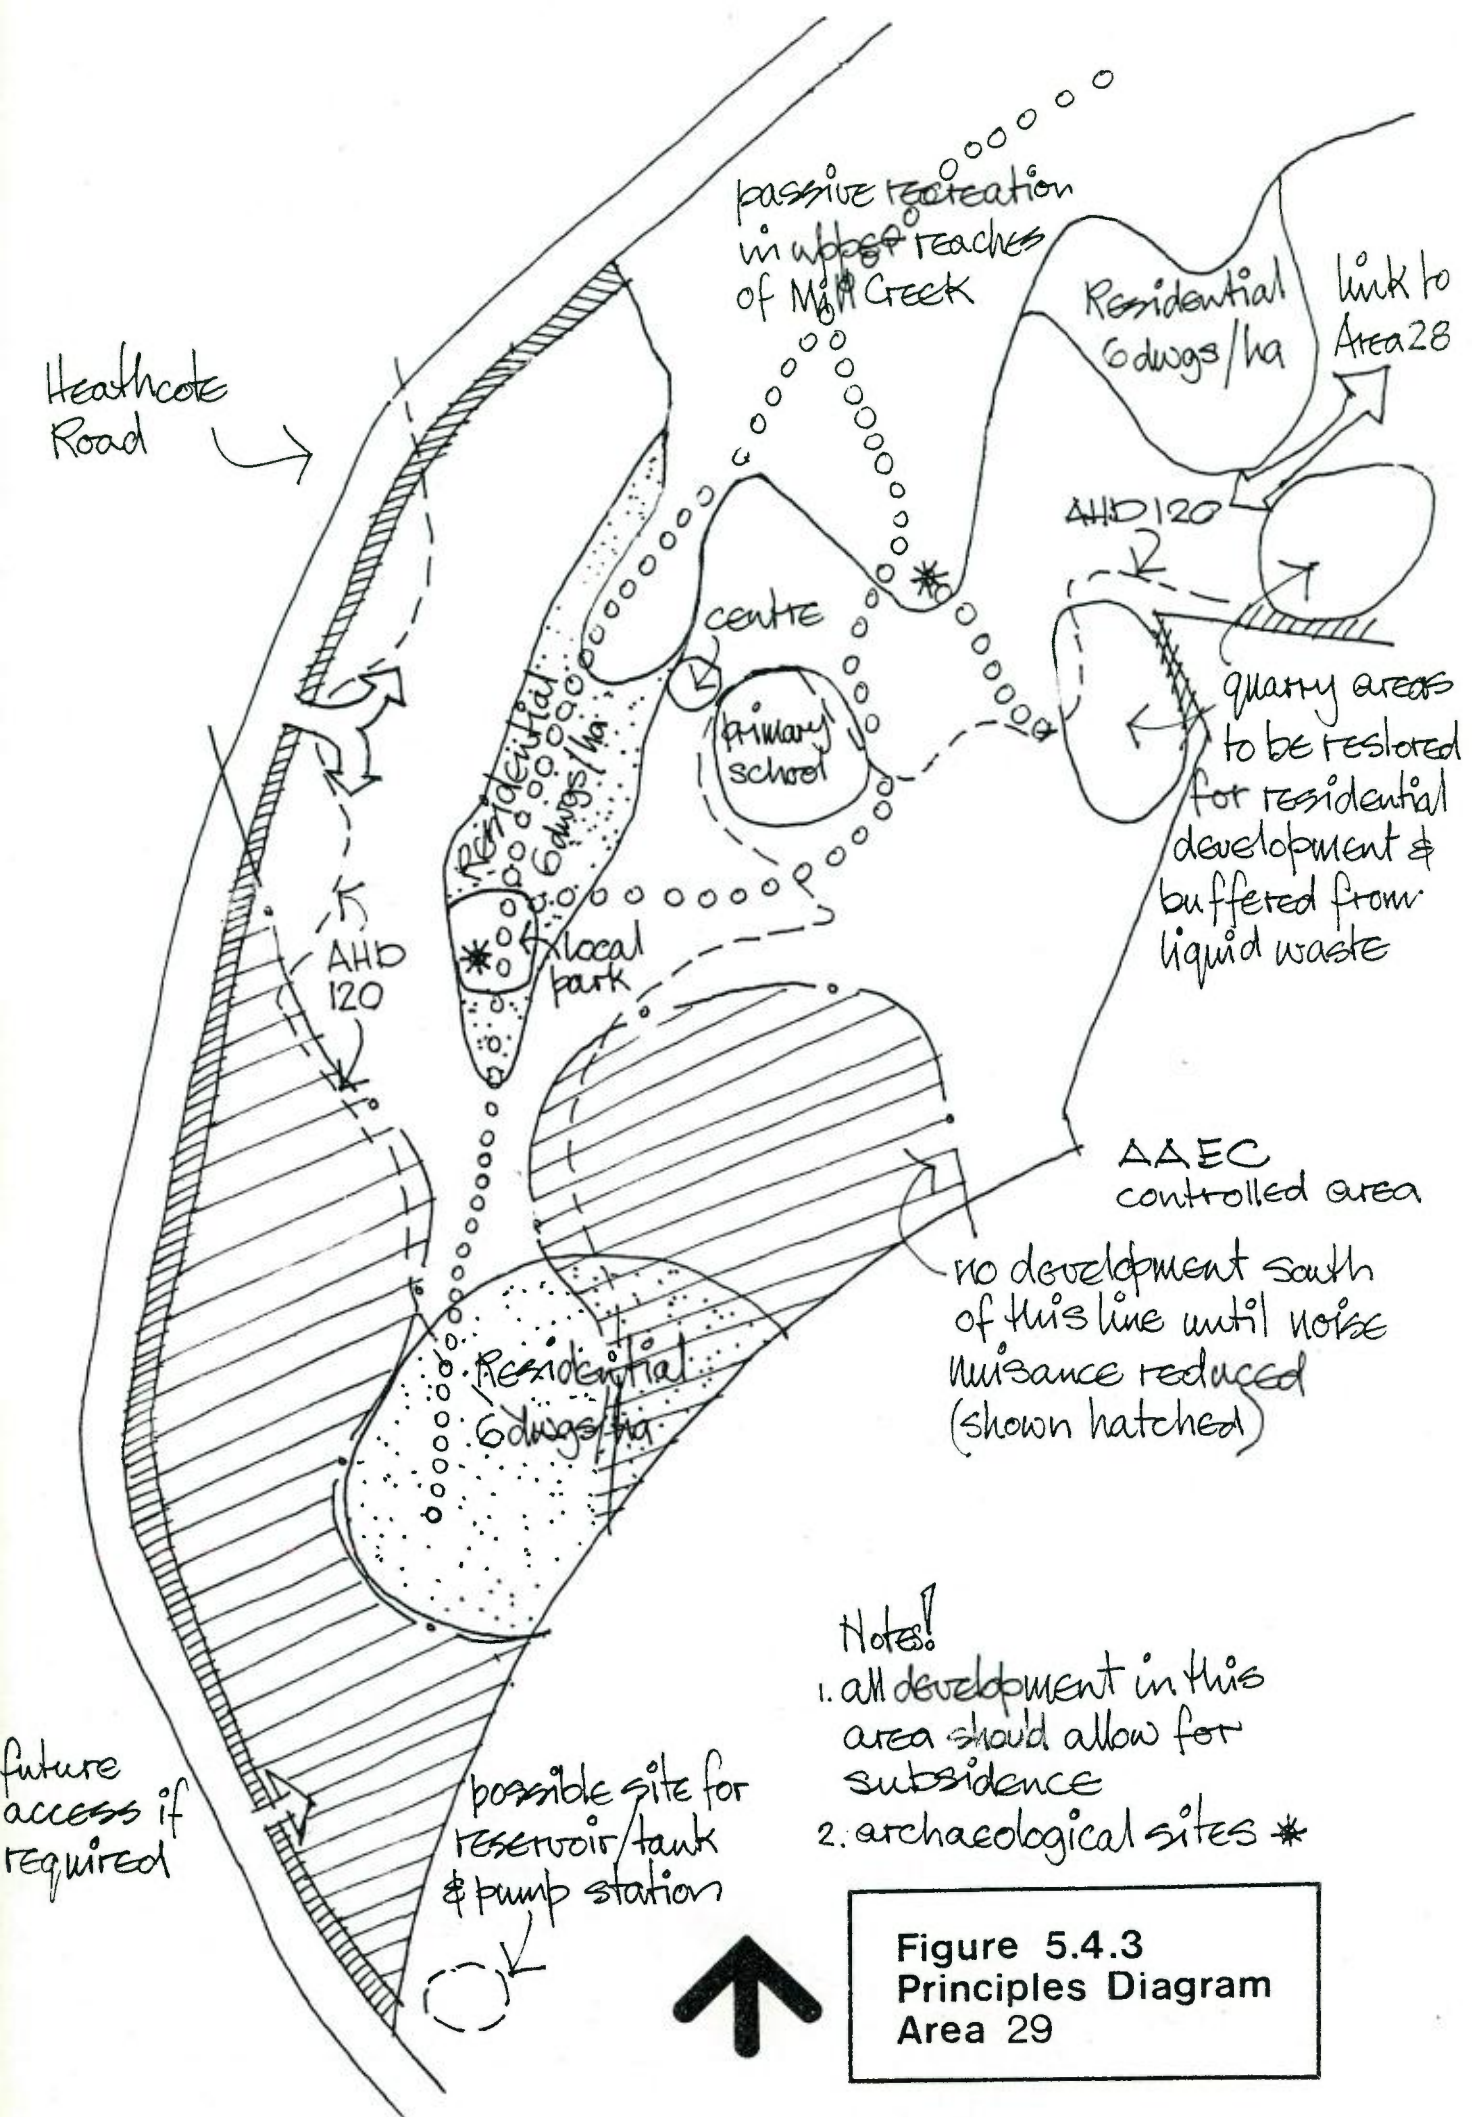 passive recreation
in upper reaches
of Mill Creek
Residential
6 dwgs/ha
link to
Area 28
Heathcote
Road
AHD 120
centre
primary
school
Residential
6 dwgs/ha
quarry areas
to be restored
for residential
development &
buffered from
liquid waste
local
park
AHD
120
AAEC
controlled area
no development south
of this line until noise
nuisance reduced
(shown hatched)
Residential
6 dwgs/ha
Notes!
1. all development in this
area should allow for
subsidence
2. archaeological sites *
future
access if
required
possible site for
reservoir/tank
& pump station
Figure 5.4.3
Principles Diagram
Area 29